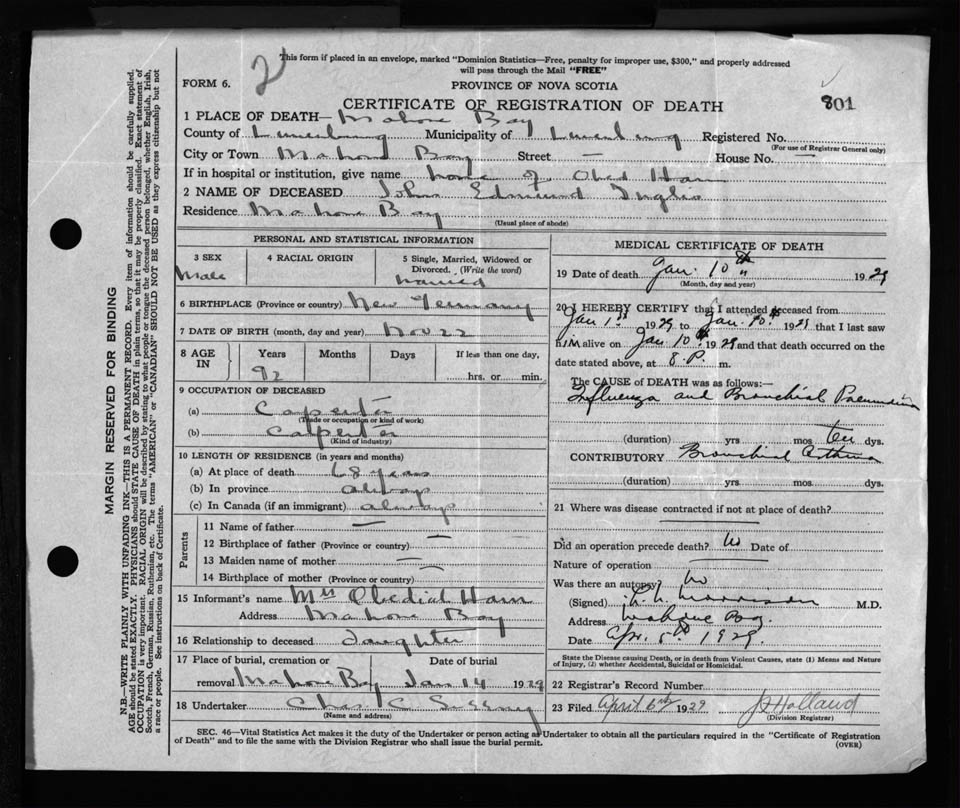 2
This form if placed in an envelope, marked "Dominion Statistics—Free, penalty for improper use, $300," and properly addressed
will pass through the Mail "FREE"
FORM 6.
PROVINCE OF NOVA SCOTIA
CERTIFICATE OF REGISTRATION OF DEATH
801
1 PLACE OF DEATH— Mahone Bay
County of Lunenburg Municipality of Lunenburg Registered No.
(For use of Registrar General only)
City or Town Mahone Bay Street — House No. —
If in hospital or institution, give name home of Obed Ham
2 NAME OF DECEASED John Edmund Inglis
Residence Mahone Bay
(Usual place of abode)
PERSONAL AND STATISTICAL INFORMATION
3 SEX 4 RACIAL ORIGIN 5 Single, Married, Widowed or
Divorced. (Write the word)
Male Married
6 BIRTHPLACE (Province or country) New Germany
7 DATE OF BIRTH (month, day and year) Nov 22
8 AGE IN Years Months Days If less than one day,
92 hrs. or min.
9 OCCUPATION OF DECEASED
(a) Carpenter
(Trade or occupation or kind of work)
(b) Carpenter
(Kind of industry)
10 LENGTH OF RESIDENCE (in years and months)
(a) At place of death 68 years
(b) In province always
(c) In Canada (if an immigrant) always
Parents
11 Name of father —
12 Birthplace of father (Province or country) —
13 Maiden name of mother —
14 Birthplace of mother (Province or country) —
15 Informant's name Mrs Obediah Ham
Address Mahone Bay
16 Relationship to deceased Daughter
17 Place of burial, cremation or Date of burial
removal Mahone Bay Jan 14 1929
18 Undertaker Chas C
(Name and address)
MEDICAL CERTIFICATE OF DEATH
19 Date of death Jan. 10th 1929
(Month, day and year)
20 I HEREBY CERTIFY that I attended deceased from
Jan 1st 1929 to Jan. 10th 1929 that I last saw
him alive on Jan 10th 1929 and that death occurred on the
date stated above, at 8 P. m.
The CAUSE of DEATH was as follows:—
Influenza and Bronchial Pneumonia
(duration) yrs mos ten dys.
CONTRIBUTORY Bronchial Asthma
(duration) yrs. mos. dys.
21 Where was disease contracted if not at place of death?
Did an operation precede death? No Date of
Nature of operation
Was there an autopsy? No
(Signed) Morrison M.D.
Address Mahone Bay
Date Apr. 5th 1929.
State the Disease causing Death, or in death from Violent Causes, state (1) Means and Nature
of Injury, (2) whether Accidental, Suicidal or Homicidal.
22 Registrar's Record Number
23 Filed April 6th 1929 Holland
(Division Registrar)
SEC. 46—Vital Statistics Act makes it the duty of the Undertaker or person acting as Undertaker to obtain all the particulars required in the "Certificate of Registration
of Death" and to file the same with the Division Registrar who shall issue the burial permit. (OVER)
MARGIN RESERVED FOR BINDING
N.B.—WRITE PLAINLY WITH UNFADING INK—THIS IS A PERMANENT RECORD. Every item of information should be carefully supplied.
AGE should be stated EXACTLY. PHYSICIANS should STATE CAUSE OF DEATH in plain terms, so that it may be properly classified. Exact statement of
OCCUPATION is very important. RACIAL ORIGIN will be described by stating to what people or tongue the deceased person belonged, whether English, Irish,
Scotch, French, German, Russian, Ruthenian, etc. The terms "AMERICAN" or "CANADIAN" SHOULD NOT BE USED as they express citizenship but not
a race or people. See instructions on back of Certificate.